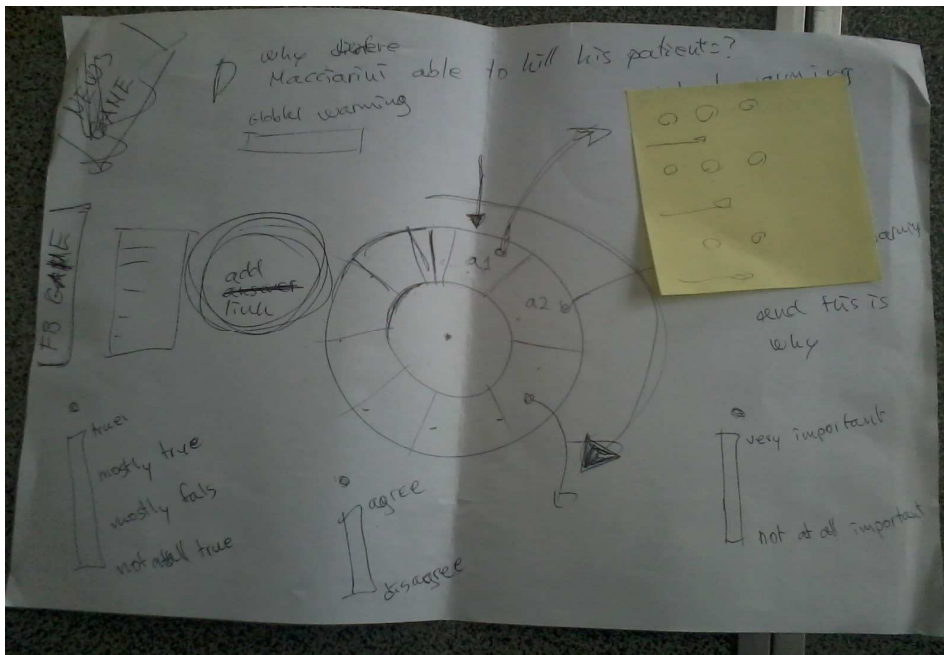 NEWS
GAME
why
Macciarini able to kill his patients?
warming
global warming
FB GAME
add
answer
link
a1
a2
send this is
why
true
mostly true
mostly fals
not at all true
agree
disagree
very important
not at all important